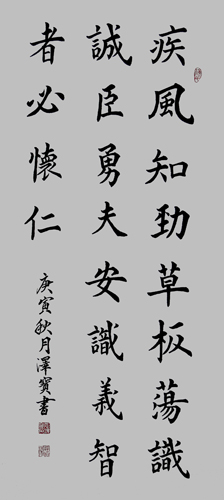 疾風知勁草板蕩識
誠臣勇夫安識義智
者必懷仁
庚寅秋月澤寶書